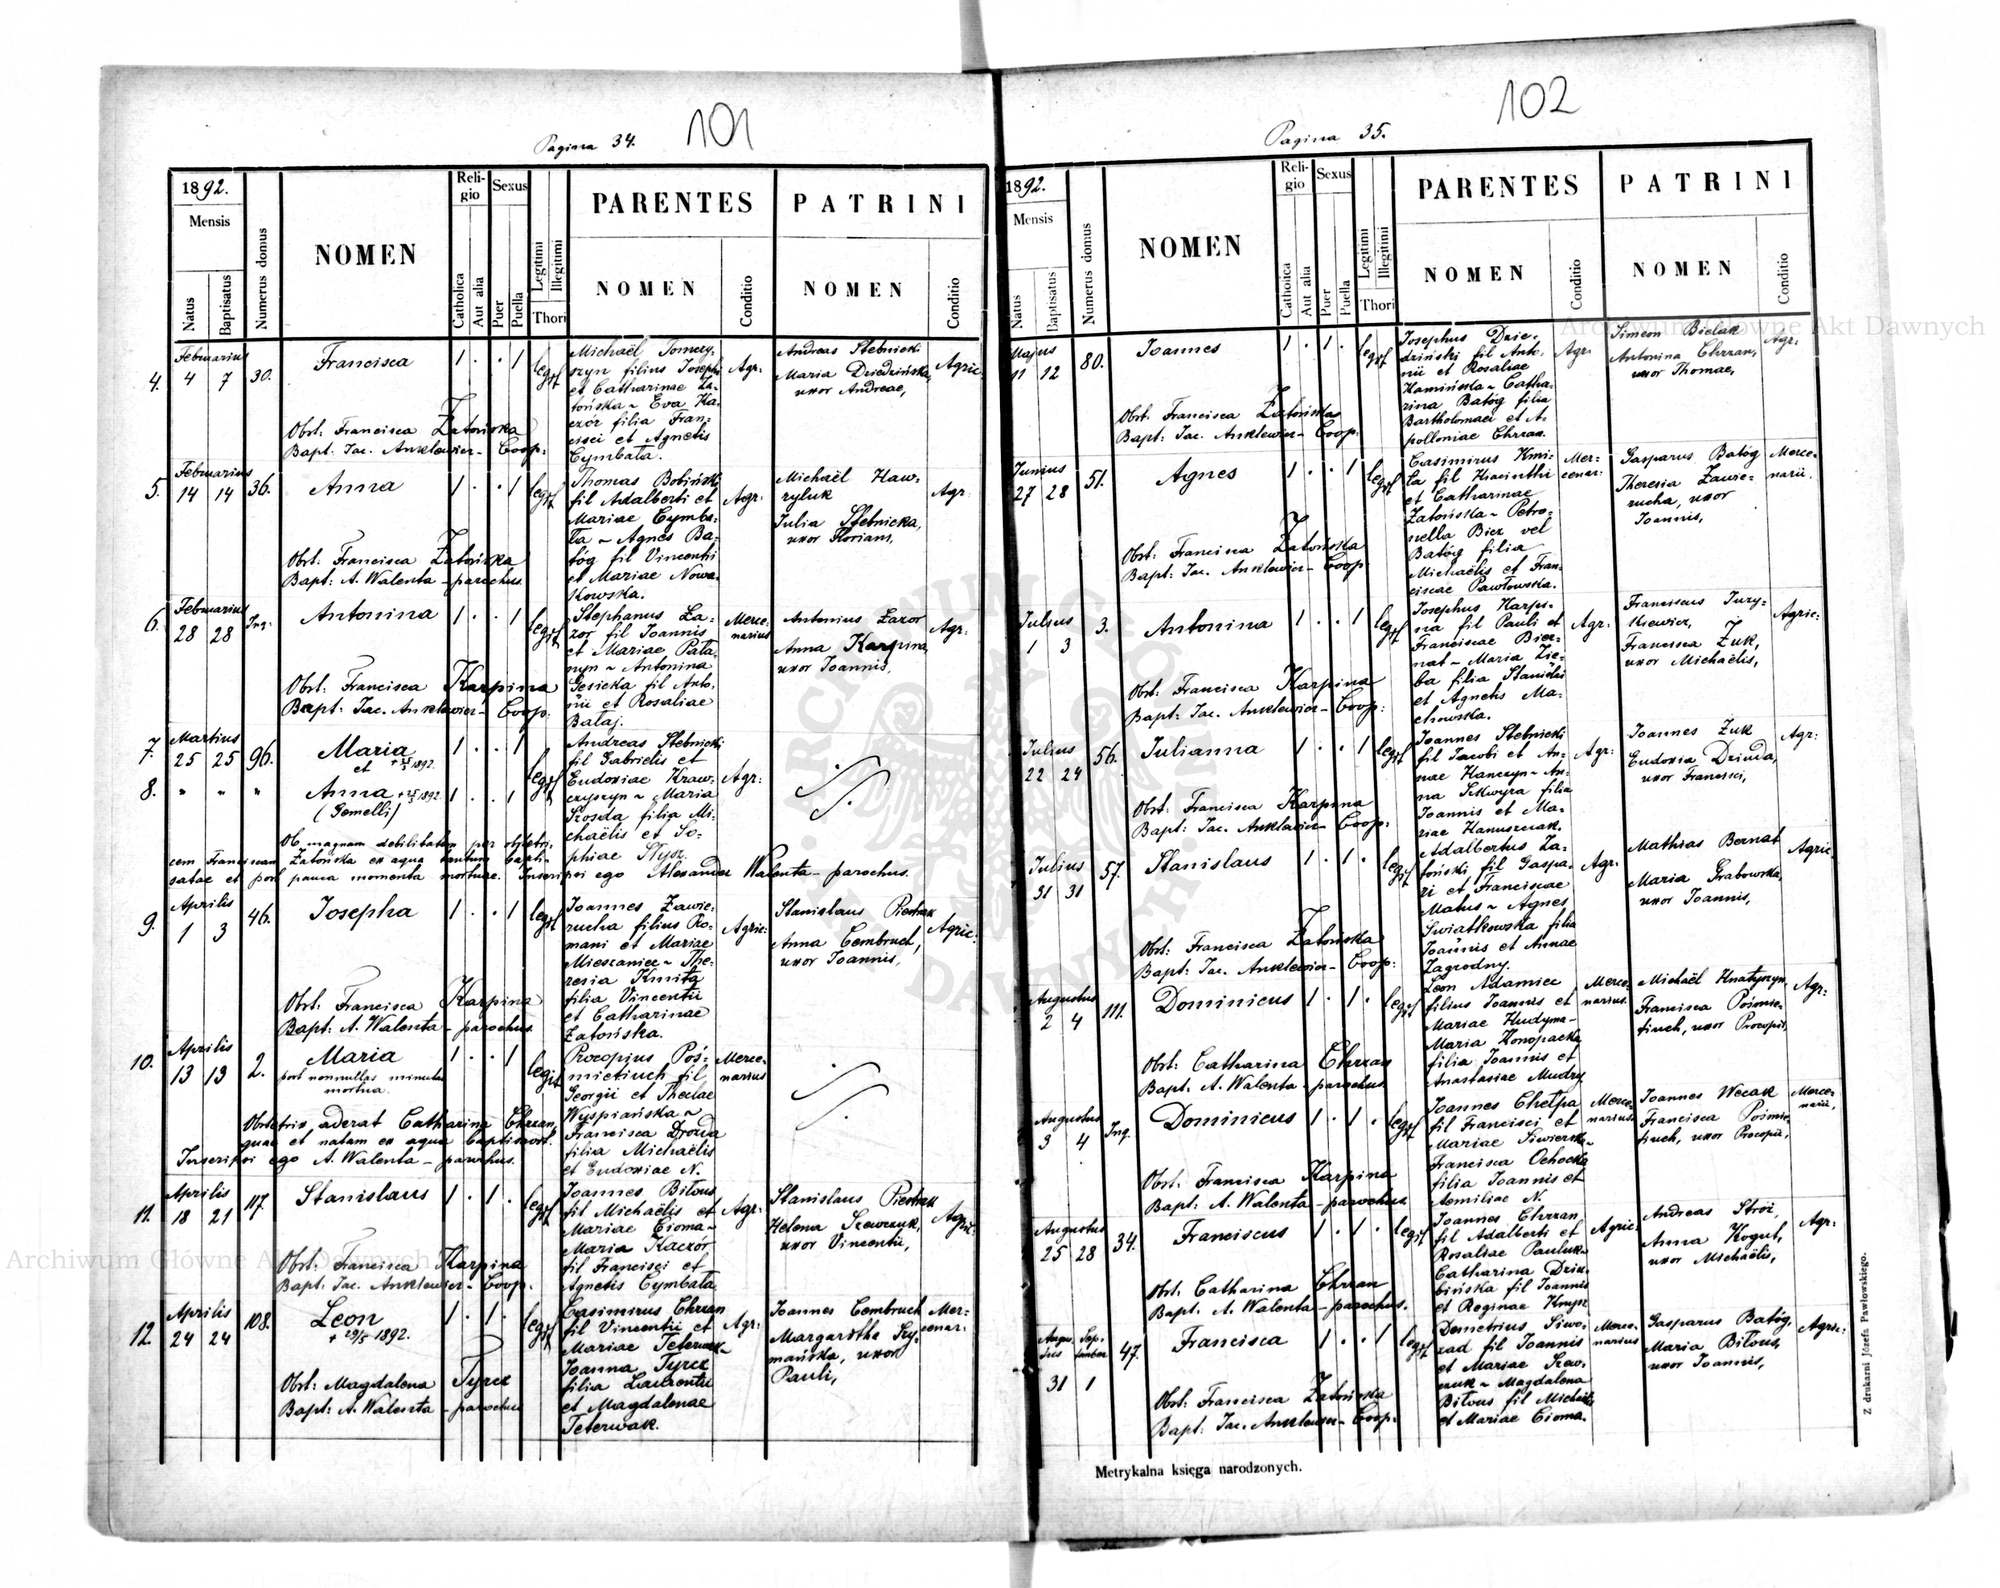 101
Pagina 34.
1892.
Mensis
Natus
Baptisatus
Numerus domus
NOMEN
Religio
Catholica
Aut alia
Sexus
Puer
Puella
Legitimi
Illegitimi
Thori
PARENTES
NOMEN
Conditio
PATRINI
NOMEN
Conditio
4.
Februarius
4 7 30.
Francisca
1 . . 1 legit
Obst: Francisca Zatońska
Bapt. Jac. Anklewicz - Coop:
Michaël Tomczy-
szyn filius Josephi
et Catharinae Za-
tońska ~ Eva Ka-
czór filia Fran-
cisci et Agnetis
Cymbała.
Agr:
Andreas Stebnicki
Maria Dziedzińska,
uxor Andreae,
Agric:
5.
Februarius
14 14 36.
Anna
1 . . 1 legit
Obst: Francisca Zatońska
Bapt: A. Walenta - parochus.
Thomas Bobiński
fil Adalberti et
Mariae Cymba-
ła ~ Agnes Ba-
tóg fil Vincentii
et Mariae Nowa-
kowska.
Agr:
Michaël Haw-
ryluk
Julia Stebnicka,
uxor Floriani,
Agr:
6.
Februarius
28 28 Inq:
Antonina
1 . . 1 legit
Obst: Francisca Karpina
Bapt: Jac. Anklewicz - Coop:
Stephanus Ła-
zor fil Joannis
et Mariae Pata-
nyn ~ Antonina
Gesicka fil Anto-
nii et Rosaliae
Bałaj.
Merce-
narius
Antonius Łazor
Anna Karpina,
uxor Joannis,
Agr:
7.
Martius
25 25 96.
Maria
et
1 . . 1
8.
" " "
Anna
(Gemelli)
1 . . 1
legit
Ob magnam debilitatem per obstetri-
cem Franciscam Zatońska ex aqua tantum bapti-
satae et post pauca momenta mortuae. Inscripsi ego Alexander Walenta - parochus.
Andreas Stebnicki
fil Gabrielis et
Eudoxiae Kraw-
czyszyn ~ Maria
Szosda filia Mi-
chaëlis et So-
phiae Stysz.
Agr:
9.
Aprilis
1 3 46.
Josepha
1 . . 1 legit
Obst: Francisca Karpina
Bapt: A. Walenta - parochus.
Joannes Zawie-
rucha filius Ro-
mani et Mariae
Mieszaniec ~ The-
resia Kmita
filia Vincentii
et Catharinae
Zatońska.
Agric:
Stanislaus Pietrak
Anna Cembruch,
uxor Joannis,
Agric:
10.
Aprilis
13 13 2.
Maria
post nonnullas minutas
mortua.
1 . . 1 legit
Obstetrix aderat Catharina Chrzan,
quae et natam ex aqua baptisavit.
Inscripsi ego A. Walenta - parochus.
Procopius Poś-
mietiuch fil
Georgii et Theclae
Wyspiańska ~
Francisca Drozd
filia Michaëlis
et Eudoxiae N.
Merce-
narius
11.
Aprilis
18 21 117.
Stanislaus
1 . 1 . legit
Obst: Francisca Karpina
Bapt: Jac. Anklewicz - Coop.
Joannes Bitous
fil Michaëlis et
Mariae Cioma ~
Maria Kaczór
fil Francisci et
Agnetis Cymbała
Agr:
Stanislaus Pietrak
Helena Szewczuk,
uxor Vincentii,
Agric:
12.
Aprilis
24 24 108.
Leon
+ 29/5 1892.
1 . 1 . legit
Obst: Magdalena Tyrcz
Bapt: A. Walenta - parochus
Casimirus Chrzan
fil Vincentii et
Mariae Teterwak ~
Joanna Tyrcz
filia Laurentii
et Magdalenae
Teterwak.
Agr:
Joannes Cembruch
Margaritha Szy-
mańska, uxor
Pauli,
Mer-
cenar:
102
Pagina 35.
1892.
Mensis
Natus
Baptisatus
Numerus domus
NOMEN
Religio
Catholica
Aut alia
Sexus
Puer
Puella
Legitimi
Illegitimi
Thori
PARENTES
NOMEN
Conditio
PATRINI
NOMEN
Conditio
Majus
11 12 80.
Joannes
1 . 1 . legit
Obst: Francisca Zatońska
Bapt: Jac. Anklewicz - Coop:
Josephus Dzie-
dziński fil Anto-
nii et Rosaliae
Kamińska ~ Catha-
rina Batóg filia
Bartholomaei et A-
polloniae Chrzan.
Agr:
Simeon Bielak
Antonina Chrzan,
uxor Thomae,
Agr:
Junius
27 28 51.
Agnes
1 . . 1 legit
Obst: Francisca Zatońska
Bapt: Jac. Anklewicz - Coop.
Casimirus Kmi-
ta fil Hiacinthi
et Catharinae
Zatońska ~ Petro-
nella Bier vel
Batóg filia
Michaëlis et Fran-
ciscae Pawłowska.
Mer-
cenar:
Gasparus Batóg
Theresia Zawie-
rucha, uxor
Joannis,
Merce-
narii.
Julius
1 3 3.
Antonina
1 . . 1 legit
Obst: Francisca Karpina
Bapt: Jac. Anklewicz - Coop:
Josephus Karpi-
na fil Pauli et
Franciscae Bier-
nat ~ Maria Zie-
ba filia Stanislai
et Agnetis Ma-
chowska.
Agr:
Franciscus Jury-
kiewicz,
Francisca Żuk,
uxor Michaëlis,
Agric:
Julius
22 24 56.
Julianna
1 . . 1 legit
Obst: Francisca Karpina
Bapt: Jac. Anklewicz - Coop:
Joannes Stebnicki
fil Jacobi et An-
nae Hanczyn ~ An-
na Sekwyra filia
Joannis et Ma-
riae Hanuszczak.
Agr:
Joannes Żuk
Eudoxia Dziuda,
uxor Francisci,
Agr:
Julius
31 31 57.
Stanislaus
1 . 1 . legit
Obst: Francisca Zatońska
Bapt: Jac. Anklewicz - Coop:
Adalbertus Za-
toński fil Gaspa-
ri et Franciscae
Matus ~ Agnes
Swiatkowska filia
Joannis et Annae
Zagrodny.
Agr:
Mathias Bernat
Maria Grabowska,
uxor Joannis,
Agric:
Augustus
2 4 111.
Dominicus
1 . 1 . legit
Obst: Catharina Chrzan
Bapt: A. Walenta - parochus
Leon Adamiec
filius Joannis et
Mariae Hudyma ~
Maria Konopacka
filia Joannis et
Anastasiae Mudry
Merce-
narius.
Michaël Hnatyszyn,
Francisca Pośmie-
tiuch, uxor Procopii,
Agr:
Augustus
3 4 Inq.
Dominicus
1 . 1 . legit
Obst: Francisca Karpina
Bapt: A. Walenta - parochus.
Joannes Chełpa
fil Francisci et
Mariae Siwierska ~
Francisca Ochocka
filia Joannis et
Aemiliae N.
Merce-
narius
Joannes Wecak
Francisca Pośmie-
tiuch, uxor Procopii,
Merce-
narii,
Augustus
25 28 34.
Franciscus
1 . 1 . legit
Obst: Catharina Chrzan
Bapt: A. Walenta - parochus.
Joannes Chrzan
fil Adalberti et
Rosaliae Pauluk ~
Catharina Dziu-
bińska fil Joannis
et Reginae Kmysz
Agric:
Andreas Stróż,
Anna Kogut,
uxor Michaëlis,
Agr:
Augus-
tus
Sep-
tember
31 1 47.
Francisca
1 . . 1 legit
Obst: Francisca Zatońska
Bapt: Jac. Anklewicz - Coop:
Demetrius Siwo-
rad fil Joannis
et Mariae Szew-
czuk ~ Magdalena
Bitous fil Michaëlis
et Mariae Cioma.
Merce-
narius
Gasparus Batóg
Maria Bitous,
uxor Joannis,
Agric:
Metrykalna księga narodzonych.
Z drukarni Józefa Pawłowskiego.
Archiwum Główne Akt Dawnych
Archiwum Główne Akt Dawnych
ARCHIWUM GŁÓWNE AKT DAWNYCH